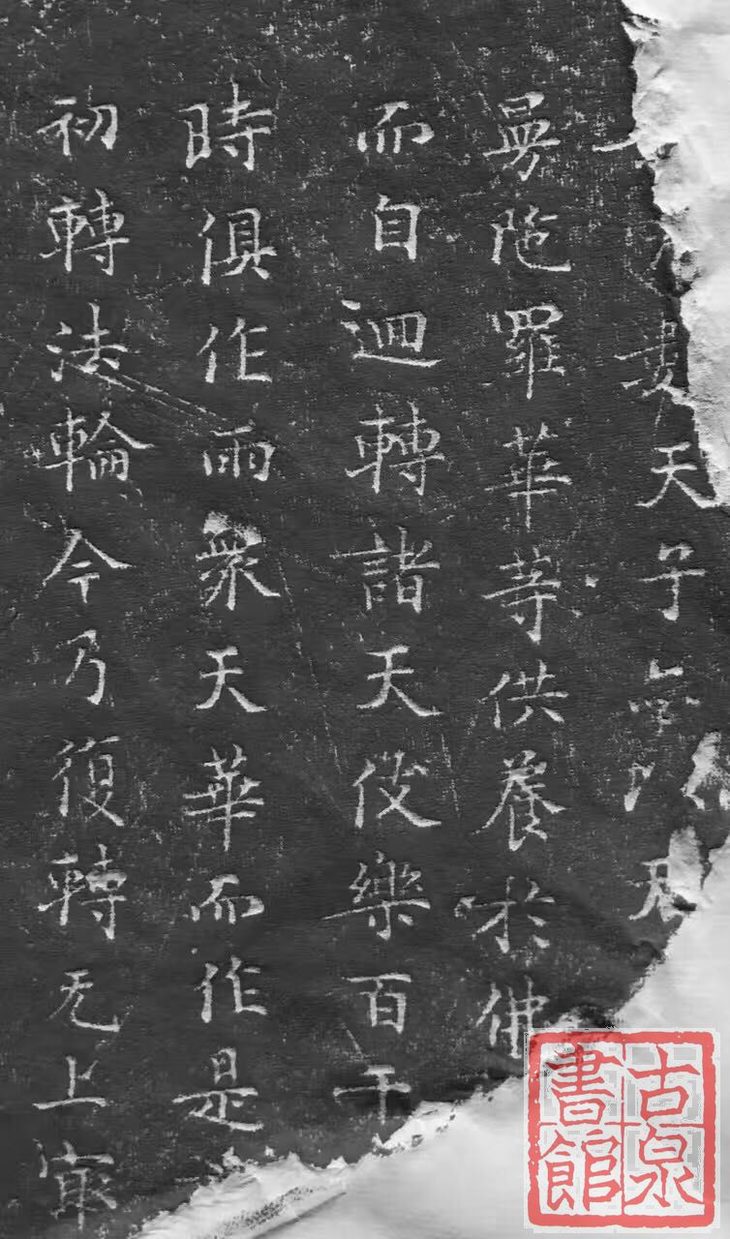 天子亦以天
曼陁羅華等供養於佛
而自迴轉諸天伎樂百千
時俱作雨衆天華而作是
初轉法輪今乃復轉无上冣
古泉書館